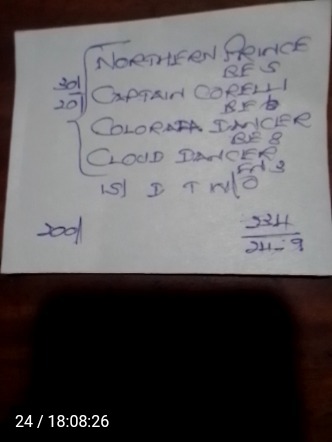 NORTHERN PRINCE
BE 5
30/ 20/ CAPTAIN CORELLI
BE 6
COLORADA DANCER
BE 8
CLOUD DANCER
EN 3
15/ D T W/O
200/ 334
24-9
24 / 18:08:26